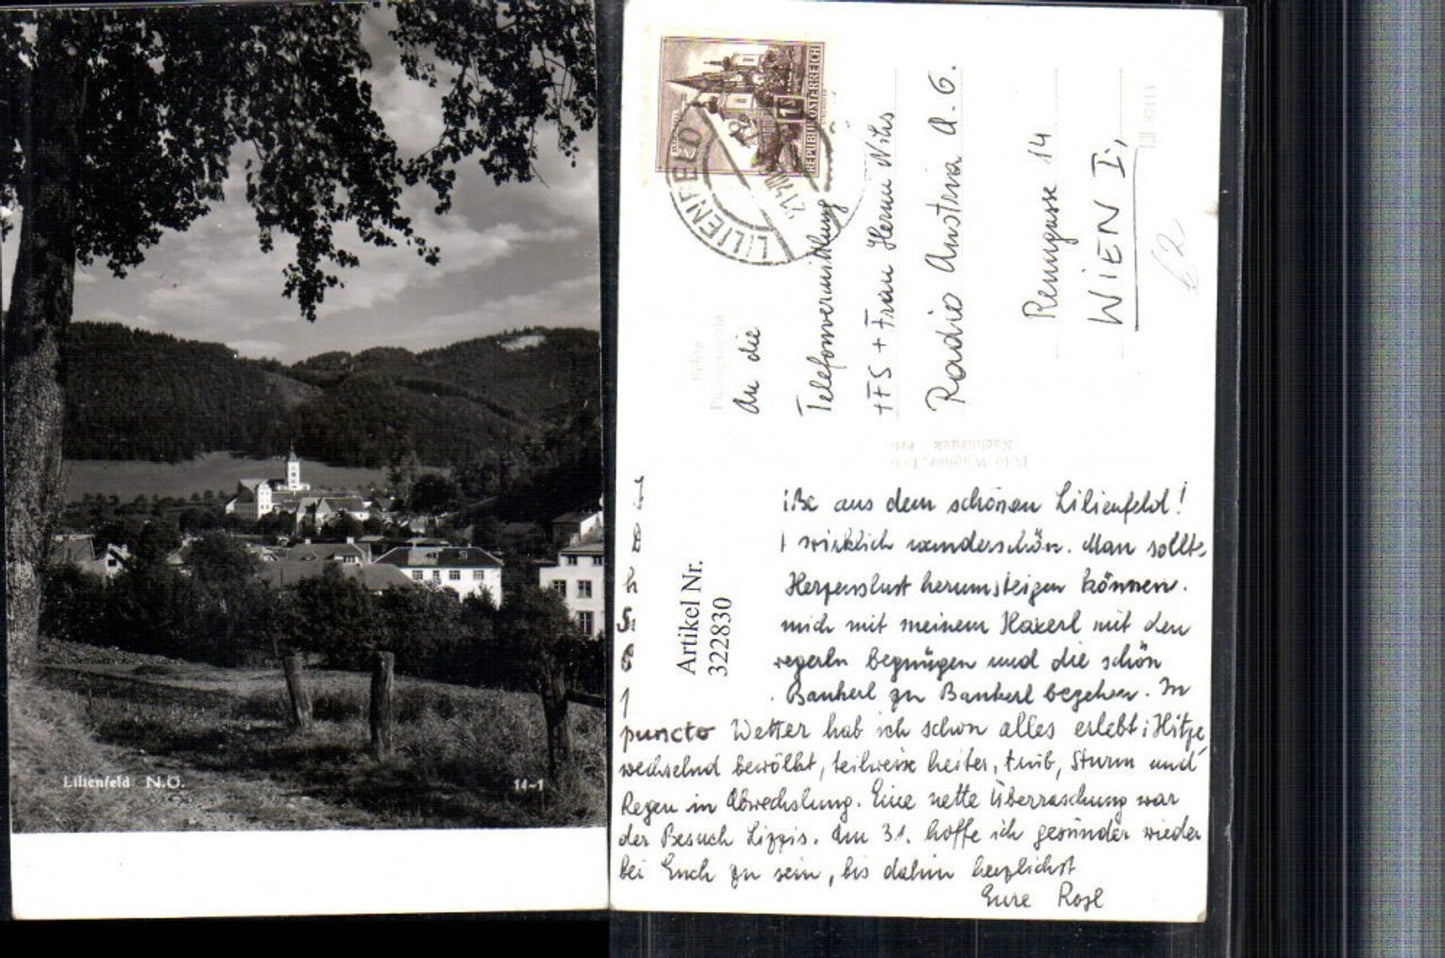 Lilienfeld N.Ö.
14-1
REPUBLIK ÖSTERREICH
LILIENFELD
An die
Telefonvermittlung
HFS + Frau Hermi
Radio Austria A.G.
Renngasse 14
WIEN I.,
62
Echte
Photographie
Foto Wagner,
Nachdruck
Artikel Nr.
322830
aus dem schönen Lilienfeld!
wirklich wunderschön. Man sollte
Herzenslust herumsteigen können.
mich mit meinem Haxerl mit den
begnügen und die schön
Bankerl zu Bankerl begehen. In
puncto Wetter hab ich schon alles erlebt: Hitze
wechselnd bewölkt, teilweise heiter, trüb, Sturm und
Regen in Abwechslung. Eine nette Überraschung war
der Besuch Lizzis. Am 31. hoffe ich gesünder wieder
bei Euch zu sein, bis dahin herzlichst
Eure Rosl